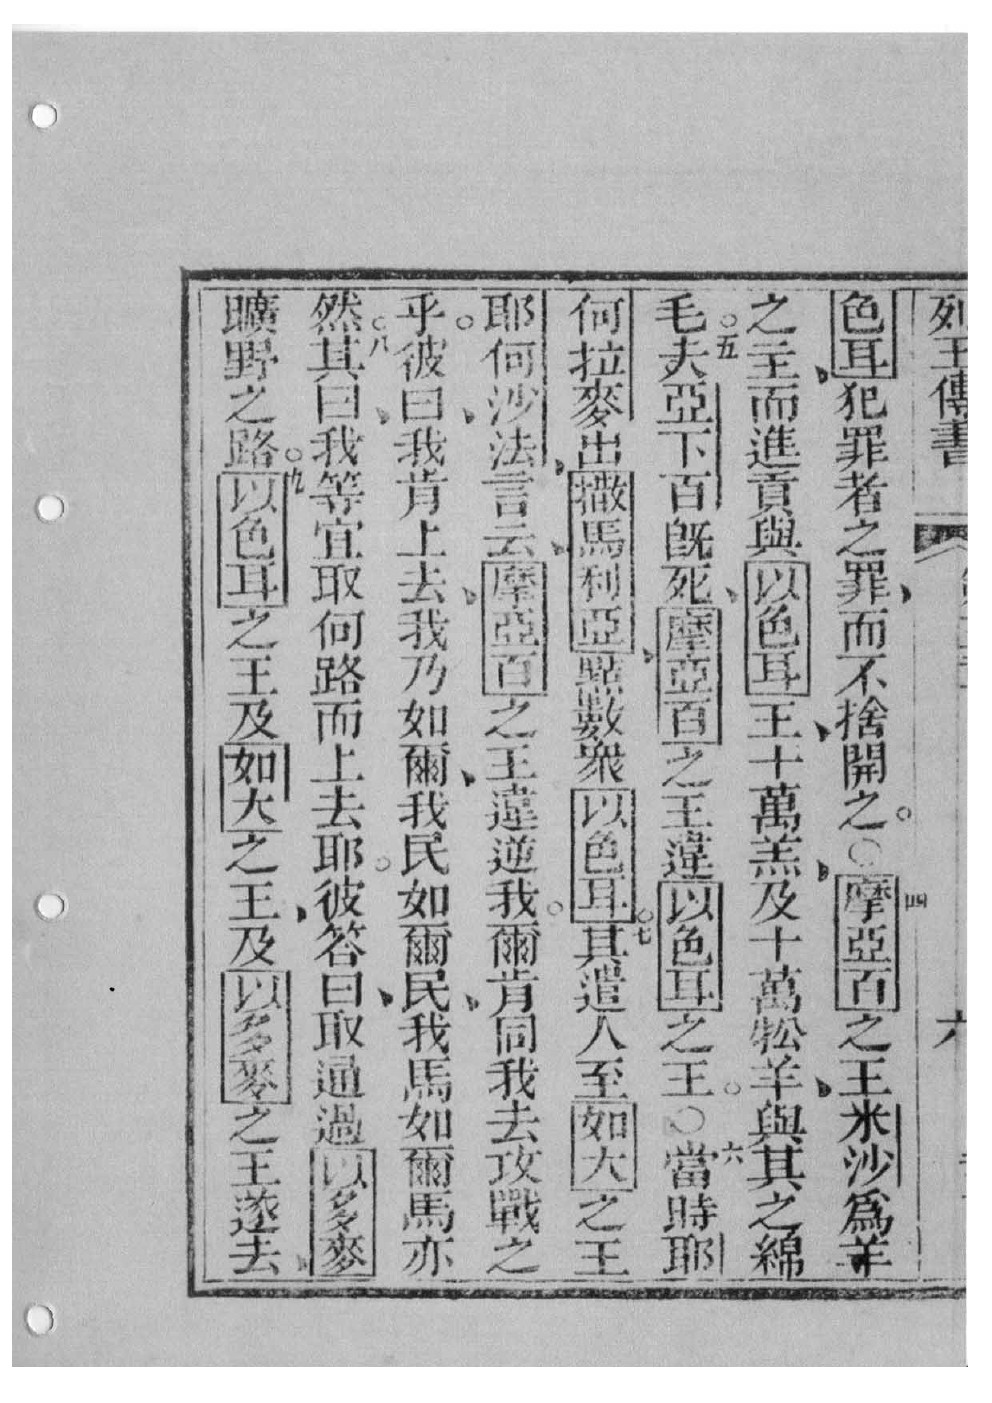 列王傳書
六
色耳犯罪者之罪而不捨開之。〇四摩亞百之王米沙為羊
之主而進貢與以色耳王十萬羔及十萬牯羊與其之綿
毛。五夫亞下百旣死摩亞百之王違以色耳之王。〇六當時耶
何拉麥出撒馬利亞點數衆以色耳。七其遣人至如大之王
耶何沙法言云摩亞百之王違逆我。爾肯同我去攻戰之
乎。彼曰我肯上去我乃如爾我民如爾民我馬如爾馬亦
然。八其曰我等宜取何路而上去耶。彼答曰取通過以多麥
曠野之路。九以色耳之王及如大之王及以多麥之王遂去